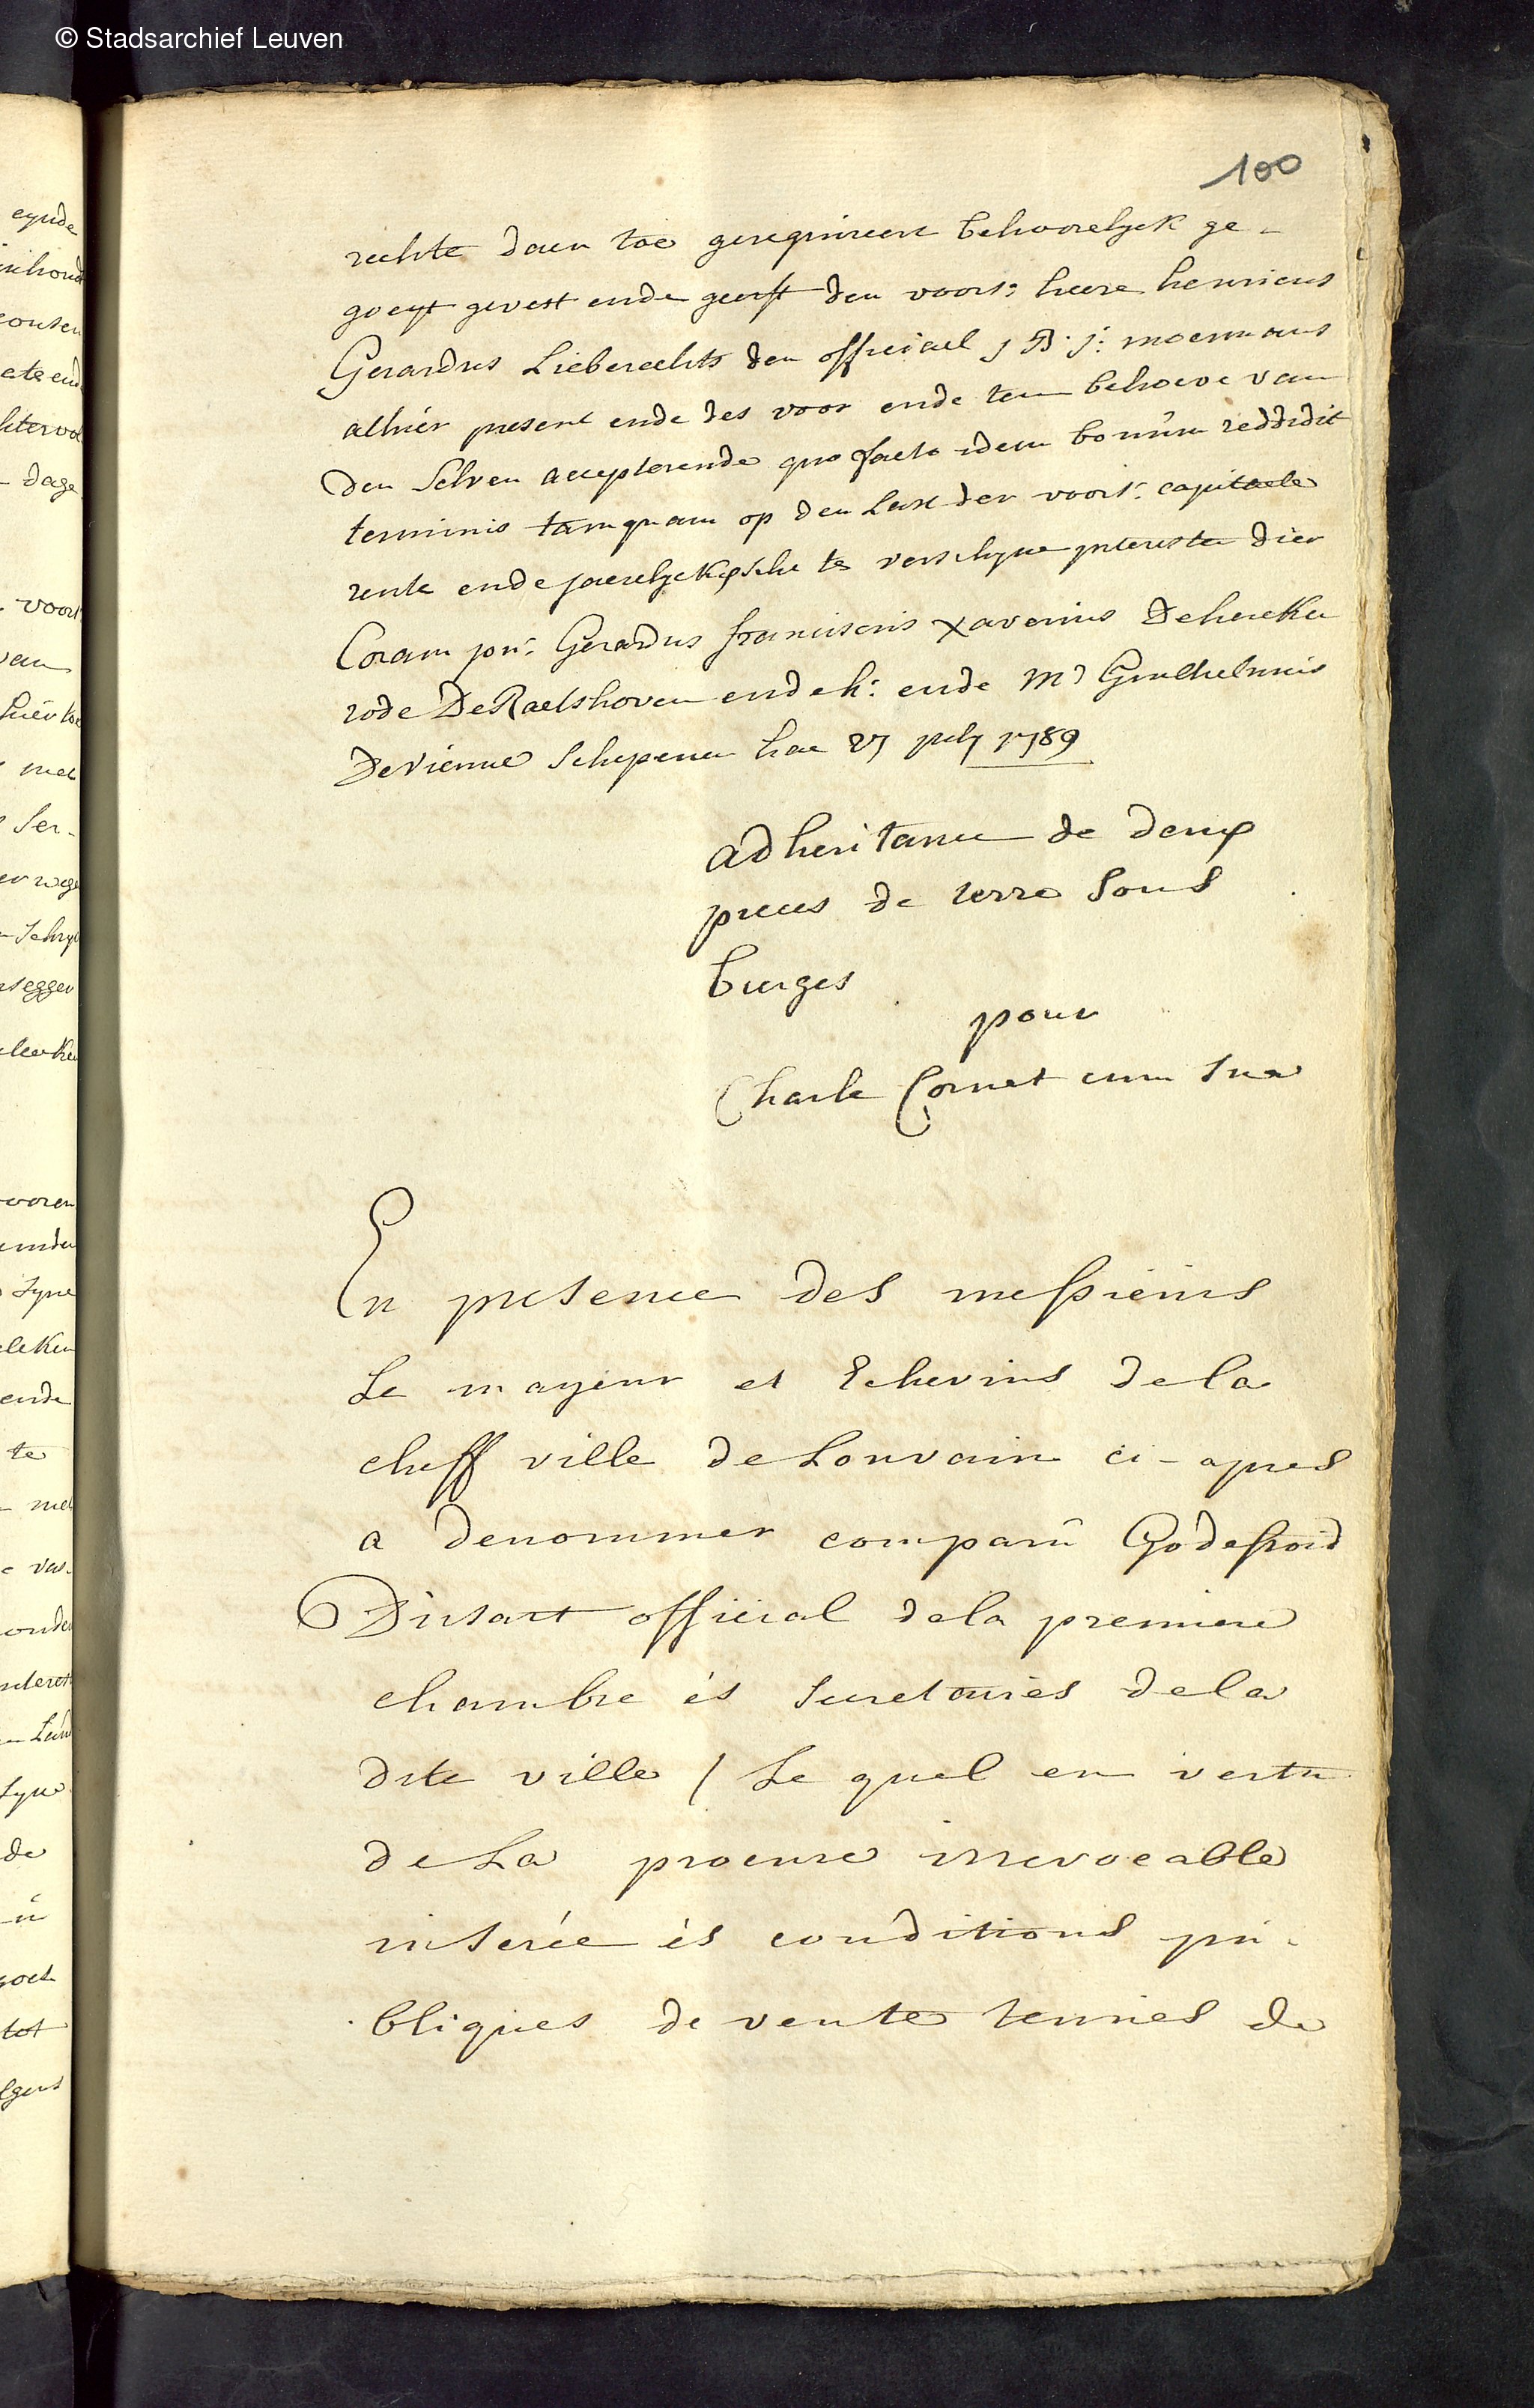 © Stadsarchief Leuven
100
rechte daer toe gerequireert behoorelyck ge-
goeyt gevest ende geerft den voors: heere henricus
Gerardus Lieberechts den officiael J B: J: moermans
alhier present ende des voor ende ten behoeve van
den selven accepterende quo facto idem bonum reddidit
terminis tamquam op den last der voors: capitaele
rente ende jaerelyckxsche te verschyne interesten dier
Coram jon: Gerardus franciscus Xaverius Deherckenrode
rode DeRaelshoven ende h: ende Mr Guilhelmus
DeVienne Schepenen hac 27 july 1789
adheritance de deux
pieces de terre sous
burges
pour
Charle Cornet cum sua
En presence des messieurs
Le mayeur et Echevins de la
cheff ville de Louvain ci-apres
a denommer comparu Godefroid
Dirsart official de la premiere
chambre és secretairies de la
dite ville / Le quel en vertu
de La procure irrevocable
inserée és conditions pu-
bliques de vente tenues de
eynde
inhoud
consen
ate end
dage
voors
van
met
ser-
segger
vooren
syne
ende
te
met
de
tot